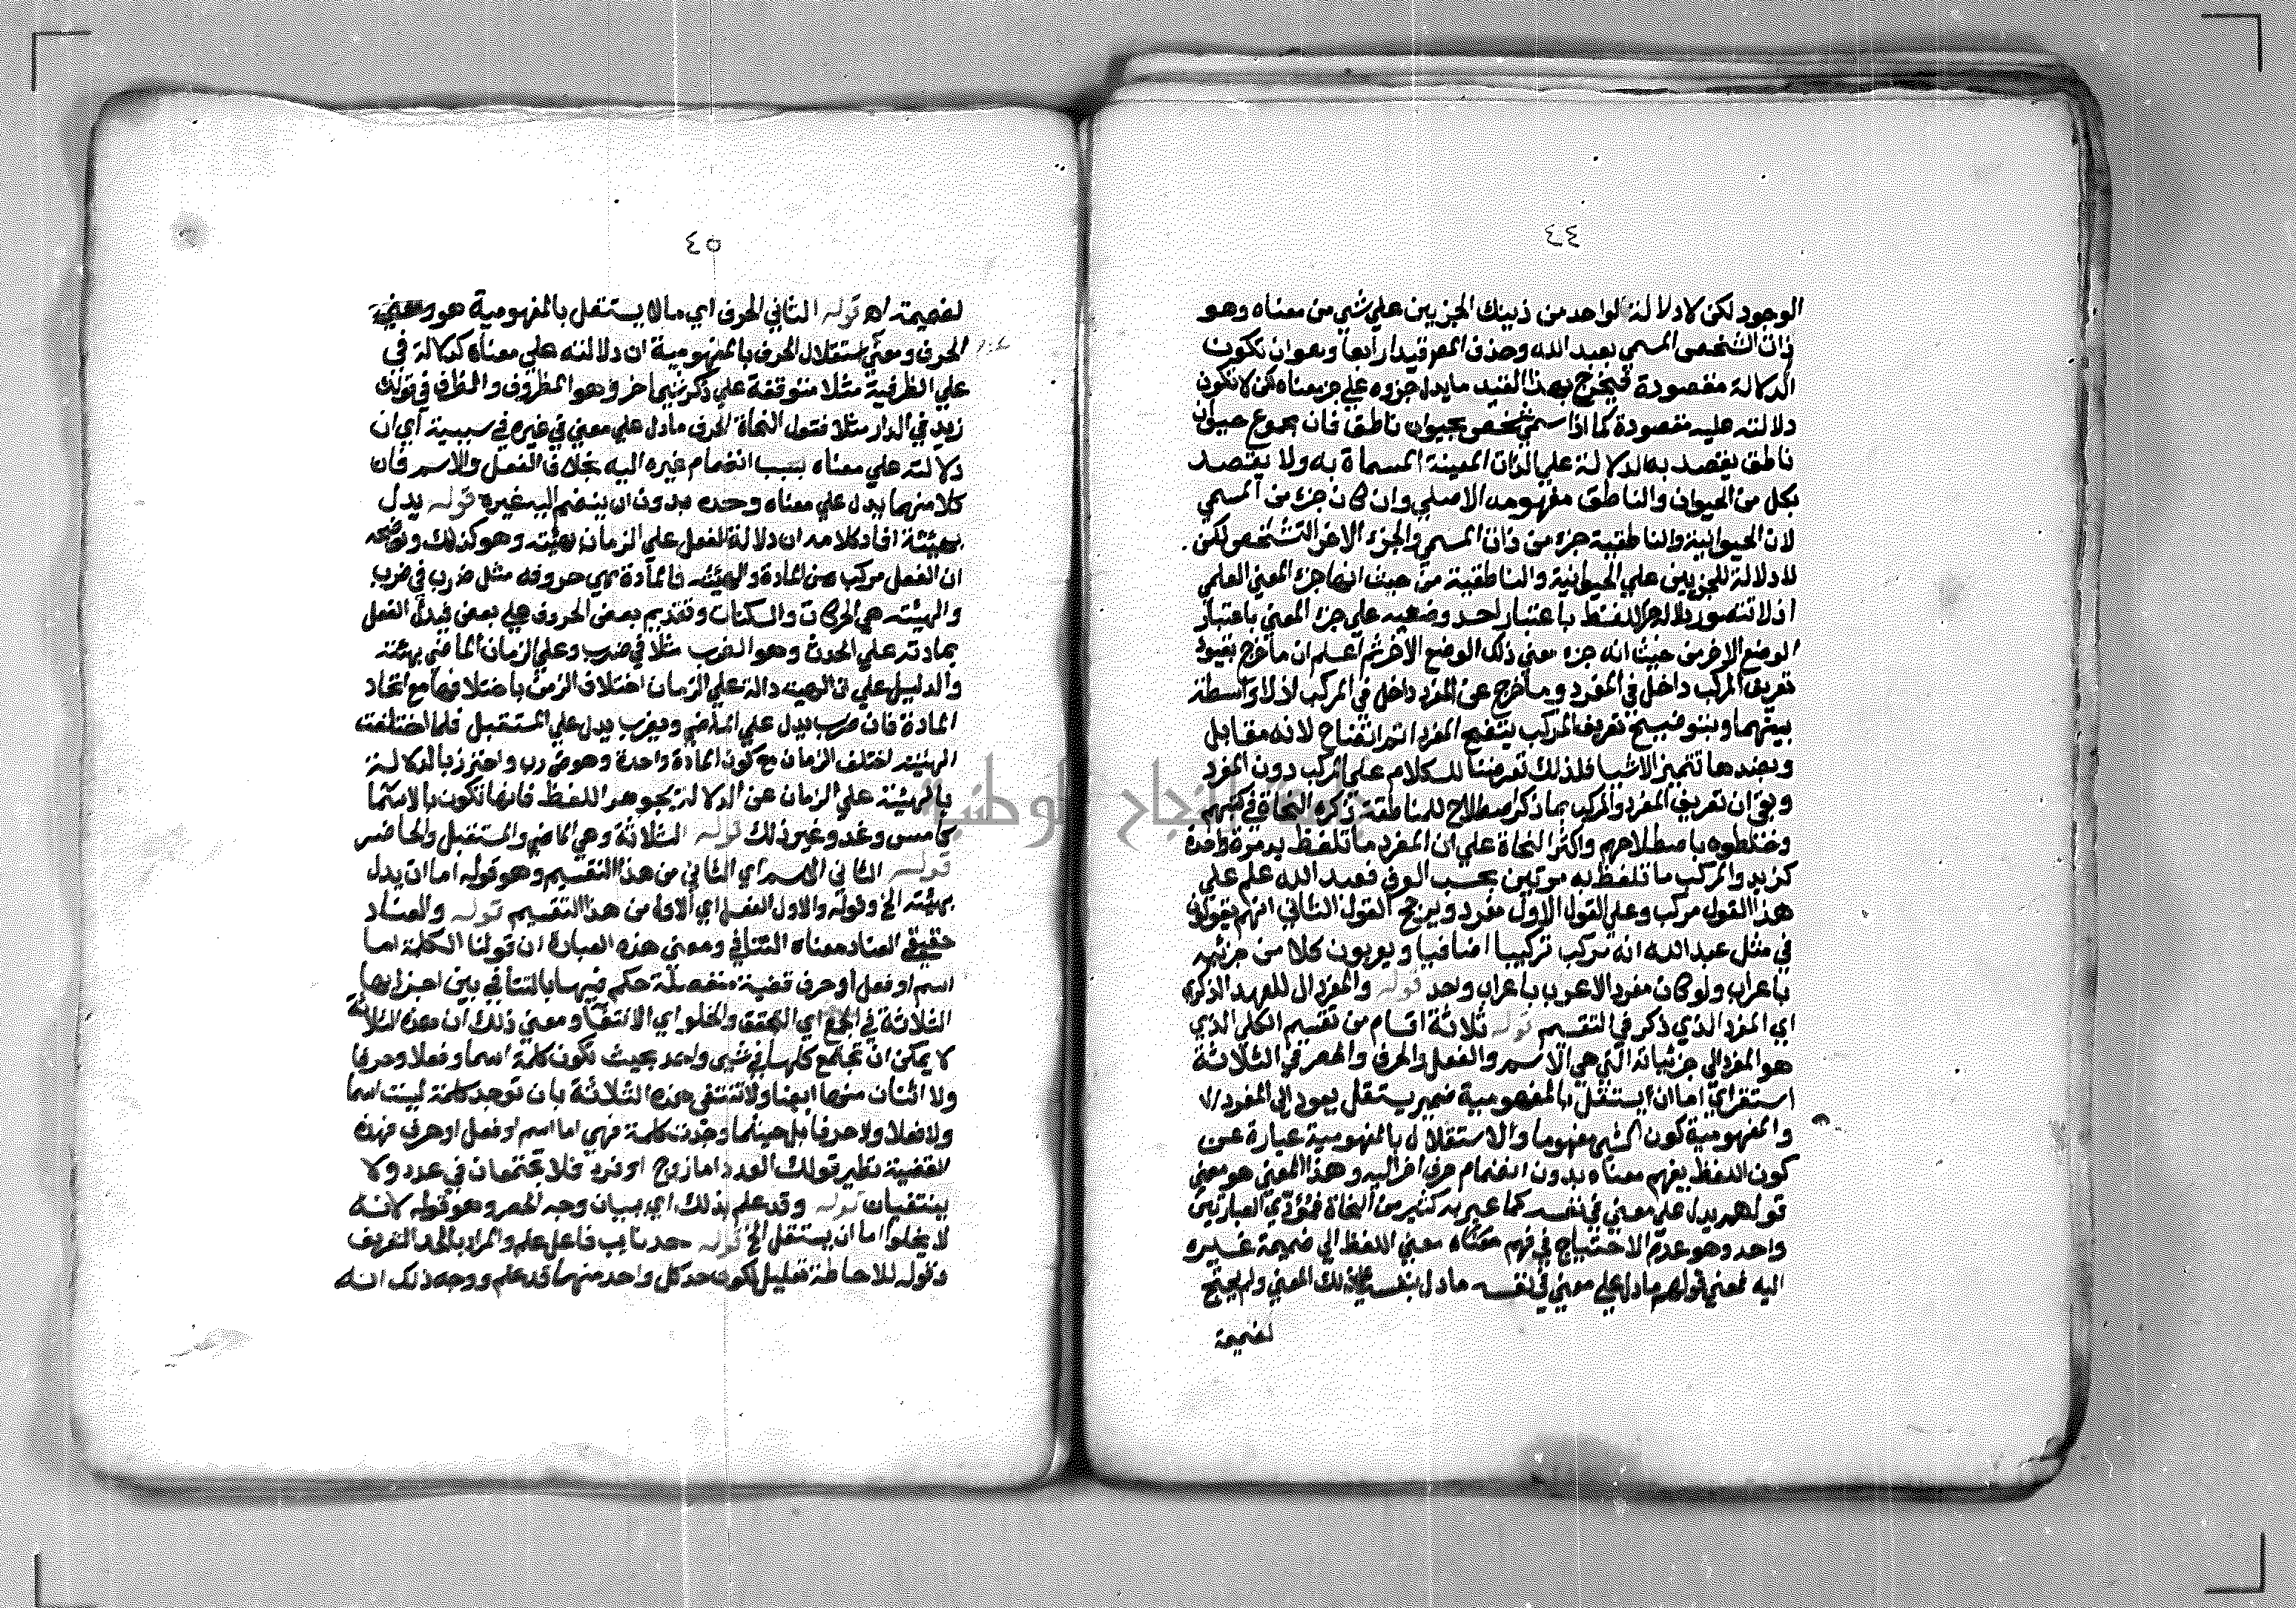 ٤٤
الوجود لكن لا دلالة لواحد من ذينك الجزيين علي شي من معناه وهو
ذات الشخص المسمي بعبد الله وحذف المص قيدا رابعا وهو ان تكون
الدلالة مقصودة فيخرج بهذا القيد ما يدل جزوه علي جز معناه لكن لا تكون
دلالته عليه مقصودة كما اذا سمي شخص بحيوان ناطق فان مجموع حيوان
ناطق يقصد به الدلالة علي الذات المعينة المسماة به ولا يقصد
بكل من الحيوان والناطق مفهومه الاصلي وان كان جزء من المسمي
لان الحيوانية والناطقية جزء من ذات المسمي والجزء الاخر التشخص لكن
لا دلالة للجزيين علي الحيوانية والناطقية من حيث انها جزء المعني العلمي
اذ لا تتصور دلالة جزء اللفظ باعتبار احد وضعيه علي جزء المعني باعتبار
الوضع الاخر من حيث انه جزء معني ذلك الوضع الاخر ثم اعلم ان ما خرج بقيود
تعريف المركب داخل في المفرد وما خرج عن المفرد داخل في المركب اذ لا واسطة
بينهما وبتوضيح تعريف المركب يتضح المفرد اتم اتضاح لانه مقابل
وبضدها تتميز الاشيا فلذلك تعرضنا للكلام علي المركب دون المفرد
وبقي ان تعريف المفرد والمركب بما ذكر اصطلاح للمناطقة ذكره النحاة في كتبهم
وخلطوه باصطلاحهم واكثر النحاة علي ان المفرد ما تلفظ به مرة واحدة
كزيد والمركب ما تلفظ به مرتين بحسب العرف فعبد الله علم علي
هذا القول مركب وعلي القول الاول مفرد ويرجح القول الثاني انهم يقولون
في مثل عبد الله انه مركب تركيبا اضافيا ويعربون كلا من جزئيه
باعراب ولو كان مفرد الاعرب باعراب واحد قوله والمفرد ال للعهد الذكري
اي المفرد الذي ذكر في التقسيم قوله ثلاثة اقسام من تقسيم الكلي الذي
هو المفرد الي جزئياته التي هي الاسم والفعل والحرف والحصر في الثلاثة
استقراي اما ان يستقل بالمفهومية ضمير يستقل يعود الي المفرد
والمفهومية كون الشي مفهوما والاستقلال بالمفهومية عبارة عن
كون اللفظ يفهم معناه بدون انضمام حرف اخر اليه وهذا المعني هو معني
قولهم يدل علي معني في نفسه كما عبر به كثير من النحاة فمؤدي العبارتين
واحد وهو عدم الاحتياج في فهم معناه معني اللفظ الي ضميمة غيره
اليه فمعني قولهم ما دل علي معني في نفسه ما دل بنفسه علي ذلك المعني ولم يحتج
لضميمة
٤٥
لضميمة اه قوله الثاني الحرف اي ما لا يستقل بالمفهومية هو
الحرف ومعني استقلال الحرف بالمفهومية ان دلالته علي معناه كدلالة في
علي الظرفية مثلا متوقفة علي ذكر شي اخر وهو المظروف والظرف في قولك
زيد في الدار مثلا فقول النحاة الحرف ما دل علي معني في غيره في سببية اي ان
دلالته علي معناه بسبب انضمام غيره اليه بخلاف الفعل والاسم فان
كلا منهما يدل علي معناه وحده بدون ان ينضم اليه غيره قوله يدل
بهيئته افاد كلامه ان دلالة الفعل علي الزمان بهيئته وهو كذلك وتوضيحه
ان الفعل مركب من المادة والهيئة فالمادة هي حروفه مثل ضرب في ضرب
والهيئة هي الحركات والسكنات وتقديم بعض الحروف علي بعض فيدل الفعل
بمادته علي الحدث وهو الضرب مثلا في ضرب وعلي الزمان الماضي بهيئته
والدليل علي ان الهيئة دالة علي الزمان اختلاف الزمن باختلافها مع اتحاد
المادة فان ضرب يدل علي الماضي ويضرب يدل علي المستقبل فلما اختلفت
الهيئة اختلف الزمان مع كون المادة واحدة وهو ض ر ب واحترز بالدلالة
بالهيئة علي الزمان عن الدلالة بجوهر اللفظ فانها تكون بالاسما
كامس وغد وغير ذلك قوله الثلاثة وهي الماضي والمستقبل والحاضر
قوله الثاني الاسم اي الثاني من هذا التقسيم وهو قوله اما ان يدل
بهيئته الخ وقوله والاول الفعل اي الاول من هذا التقسيم قوله والعناد
حقيقي العناد معناه التنافي ومعني هذه العبارة ان قولنا الكلمة اما
اسم او فعل او حرف قضية منفصلة حكم فيها بالتنافي بين اجزايها
الثلاثة في الجمع اي التحقق والخلو اي الانتفا ومعني ذلك ان هذه الثلاثة
لا يمكن ان تجتمع كلها في شي واحد بحيث تكون كلمة اسما وفعلا وحرفا
ولا اثنان منها ايضا ولا تنتفي هذه الثلاثة بان توجد كلمة ليست اسما
ولا فعلا ولا حرفا بل حيثما وجدت كلمة فهي اما اسم او فعل او حرف فهذه
القضية نظير قولك العدد اما زوج او فرد فلا يجتمعان في عدد ولا
ينتفيان قوله وقد علم بذلك اي ببيان وجه الحصر وهو قوله لانه
لا يخلوا اما ان يستقل الخ قوله حد نايب فاعل علم والمراد بالحد التعريف
وقوله للاحاطة تعليل لكون حد كل واحد منهما قد علم ووجه ذلك انه
جامعة النجاح الوطنية